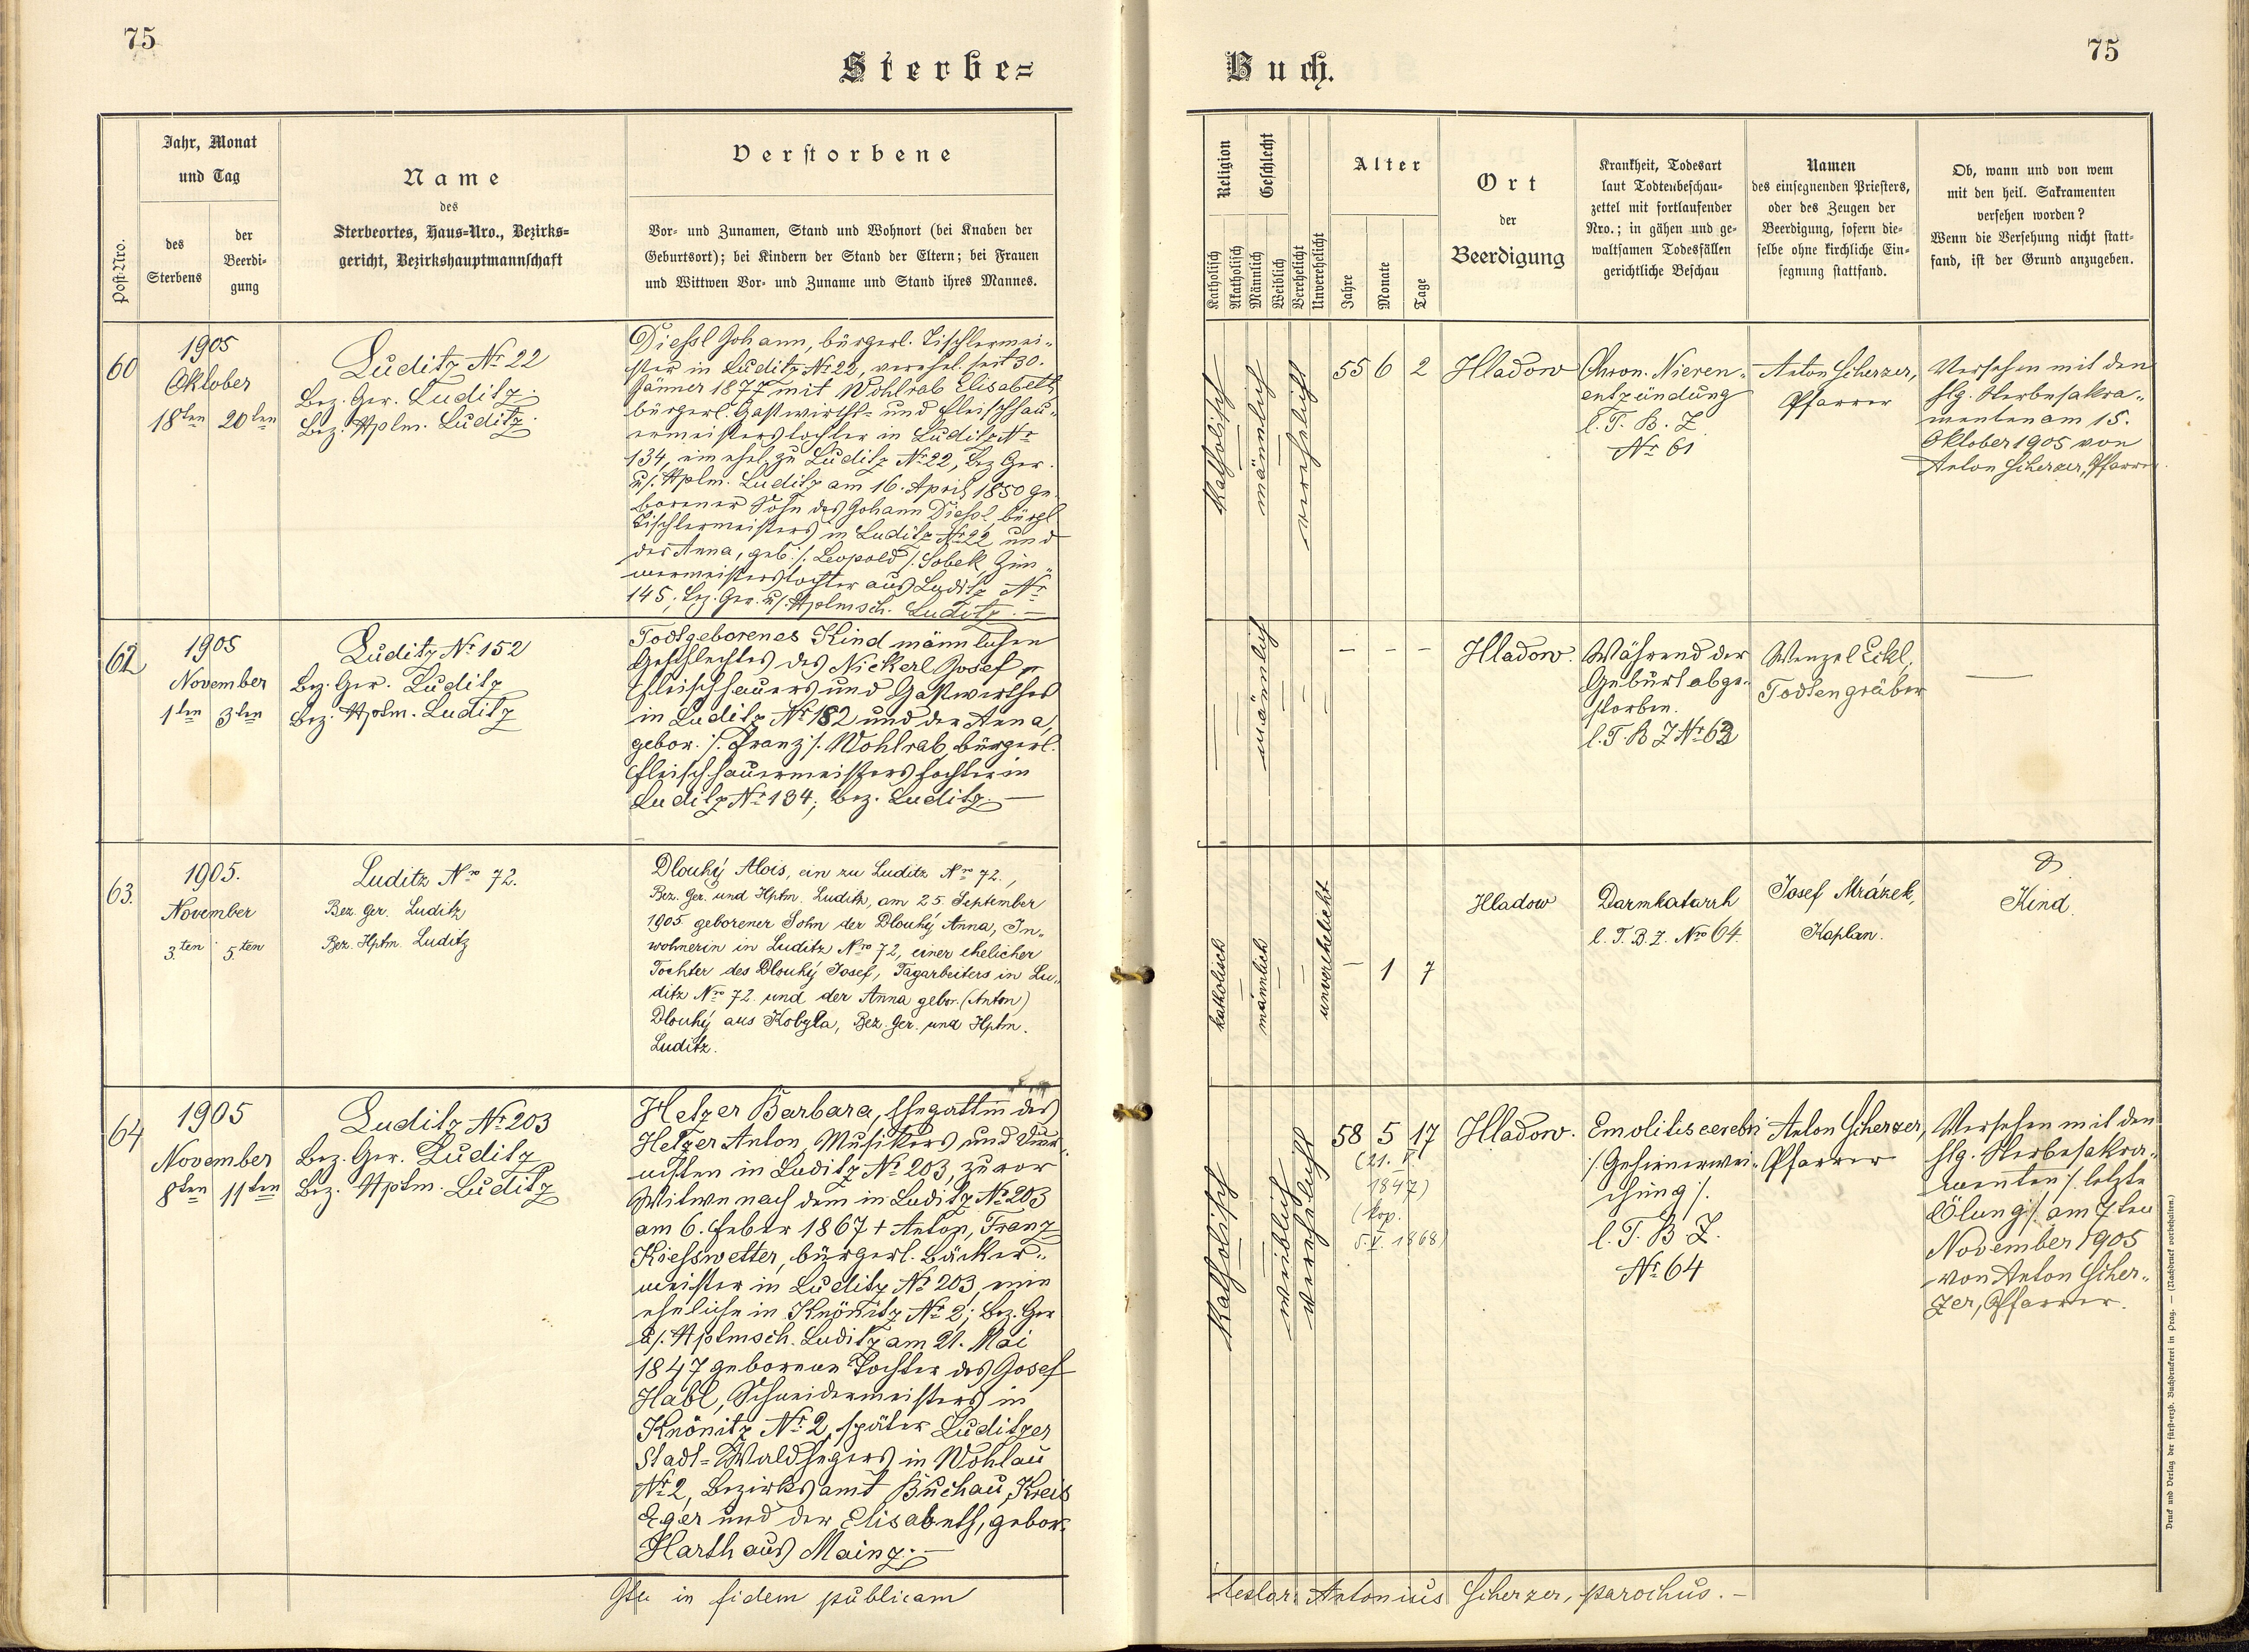 75
Sterbe=
Post-Nro.
Jahr, Monat
und Tag
des
Sterbens
der
Beerdi-
gung
Name
des
Sterbeortes, Haus-Nro., Bezirks-
gericht, Bezirkshauptmannschaft
Verstorbene
Vor- und Zunamen, Stand und Wohnort (bei Knaben der
Geburtsort); bei Kindern der Stand der Eltern; bei Frauen
und Wittwen Vor- und Zuname und Stand ihres Mannes.
60
1905
Oktober
18ten 20ten
Luditz Nr. 22
Bez. Ger. Luditz
Bez. Hptm. Luditz.
Diessl Johann, bürgerl. Tischlermei-
ster in Luditz Nr. 22, verehel. seit 30.
Jänner 1877 mit Wohlrab Elisabeth,
bürgerl. Gastwirths- und Fleischhau-
ermeisterstochter in Luditz Nr.
134, ein ehel. zu Luditz Nr. 22, Bez. Ger.
u/. Hptm. Luditz am 16. April 1850 ge-
borener Sohn des Johann Diessl, bürgl.
Tischlermeisters in Luditz Nr. 22 und
der Anna, geb. /. Leopold /. Sobek, Zim-
mermeisterstochter aus Luditz Nr.
145, Bez. Ger. u/. Hptmsch. Luditz. —
62
1905
November
1ten 3ten
Luditz Nr. 152
Bez. Ger. Luditz
Bez. Hptm. Luditz
Todtgeborenes Kind männlichen
Geschlechtes des Nickerl Josef,
Fleischhauers und Gastwirthes
in Luditz Nr. 182 und der Anna,
gebor. /. Franz /. Wohlrab, bürgerl.
Fleischhauermeisterstochter in
Luditz Nr. 134, Bez. Luditz. —
63.
1905.
November
3.ten 5.ten
Luditz Nro 72.
Bez. Ger. Luditz
Bez. Hptm. Luditz
Dlouhý Alois, ein zu Luditz Nro 72.,
Bez. Ger. und Hptm. Luditz, am 25. September
1905 geborener Sohn der Dlouhý Anna, In-
wohnerin in Luditz Nro 72, einer ehelicher
Tochter des Dlouhý Josef, Tagarbeiters in Lu-
ditz Nro 72. und der Anna gebor. (Anton)
Dlouhý aus Kobyla, Bez. Ger. und Hptm.
Luditz.
64
1905
November
8ten 11ten
Luditz Nr. 203
Bez. Ger. Luditz
Bez. Hptm. Luditz
Hetzer Barbara, Ehegattin des
Hetzer Anton, Musikers und
in Luditz Nr. 203, zuvor
Witwe nach dem in Luditz Nr. 203
am 6. Feber 1867 + Anton, Franz
Kiesswetter, bürgerl. Bäcker-
meister in Luditz Nr. 203, eine
eheliche in Knönitz Nr. 2, Bez. Ger.
u/. Hptmsch. Luditz am 21. Mai
1847 geborene Tochter des Josef
Habl, Schneidermeisters in
Knönitz Nr. 2, später Luditzer
Stadt-Waldhegers in Wohlau
Nr. 2, Bezirksamt Buchau, Kreis
Eger und der Elisabeth, gebor.
Harth aus Mainz. —
in fidem publicam
75
Buch.
Religion
Katholisch
Akatholisch
Geschlecht
Männlich
Weiblich
Verehelicht
Unverehelicht
Alter
Jahre
Monate
Tage
Ort
der
Beerdigung
Krankheit, Todesart
laut Todtenbeschau-
zettel mit fortlaufender
Nro.; in gähen und ge-
waltsamen Todesfällen
gerichtliche Beschau
Namen
des einsegnenden Priesters,
oder des Zeugen der
Beerdigung, sofern die-
selbe ohne kirchliche Ein-
segnung stattfand.
Ob, wann und von wem
mit den heil. Sakramenten
versehen worden?
Wenn die Versehung nicht statt-
fand, ist der Grund anzugeben.
Katholisch
männlich
verehelicht
55 6 2
Hladow
Chron. Nieren-
entzündung
l. T. B. Z
Nr. 61
Anton Scherzer,
Pfarrer
Versehen mit den
hlg. Sterbesakra-
menten am 15.
Oktober 1905 von
Anton Scherzer, Pfarrer.
—
männlich
— — —
Hladow.
Während der
Geburt abge-
storben.
l. T. B Z Nr. 63
Wenzel Eckl,
Todtengräber
—
katholisch
männlich
unverehelicht
— 1 7
Hladow
Darmkatarrh
l. T. B. Z. Nro 64.
Josef Mrázek,
Kaplan.
Kind.
Katholisch
weiblich
verehelicht
58 5 17
(21. V.
1847)
(kop.
5. V. 1868)
Hladow.
Emolitis cerebri
/. Gehirnerwei-
chung /.
l. T. B Z.
Nr. 64
Anton Scherzer,
Pfarrer
Versehen mit den
hlg. Sterbesakra-
menten /. letzte
Ölung /. am 7ten
November 1905
von Anton Scher-
zer, Pfarrer.
testor: Antonius Scherzer, parochus. —
Druck und Verlag der fürst-erzb. Buchdruckerei in Prag. — (Nachdruck vorbehalten.)